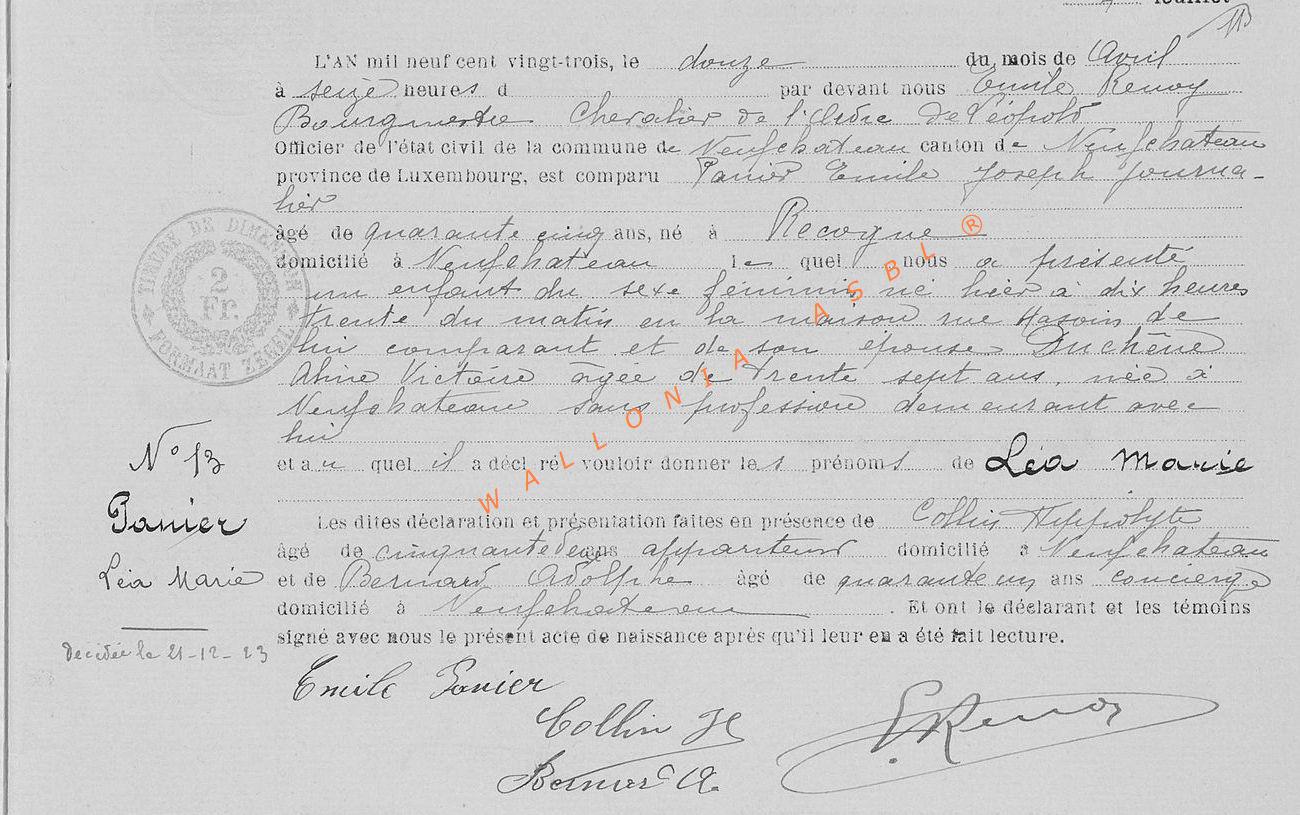 feuillet
113
L'AN mil neuf cent vingt-trois, le douze du mois de Avril
à seize heures d par devant nous Emile Renoy
Bourgmestre Chevalier de l'Ordre de Léopold
Officier de l'état civil de la commune de Neufchateau canton de Neufchateau
province de Luxembourg, est comparu Panier Emile Joseph Journa-
lier
âgé de quarante cinq ans, né à Recogne
domicilié à Neufchateau le quel nous a présenté
un enfant du sexe féminin né hier à dix heures
trente du matin en la maison rue de
lui comparant et de son épouse Duchêne
Aline Victoire âgée de trente sept ans, née à
Neufchateau sans profession demeurant avec
lui
et au quel il a déclaré vouloir donner les prénoms de Léa Marie
Les dites déclaration et présentation faites en présence de Collin Hippolyte
âgé de cinquante ans appariteur domicilié à Neufchateau
et de Bernard Adolphe âgé de quarante un ans concierge
domicilié à Neufchateau . Et ont le déclarant et les témoins
signé avec nous le présent acte de naissance après qu'il leur en a été fait lecture.
TIMBRE DE DIMENSION
2
Fr.
FORMAAT ZEGEL
N° 13
Panier
Léa Marie
Décédée le 21-12-23
Emile Panier
Collin H
Bernard A.
E Renoy
WALLONIA ASBL ®